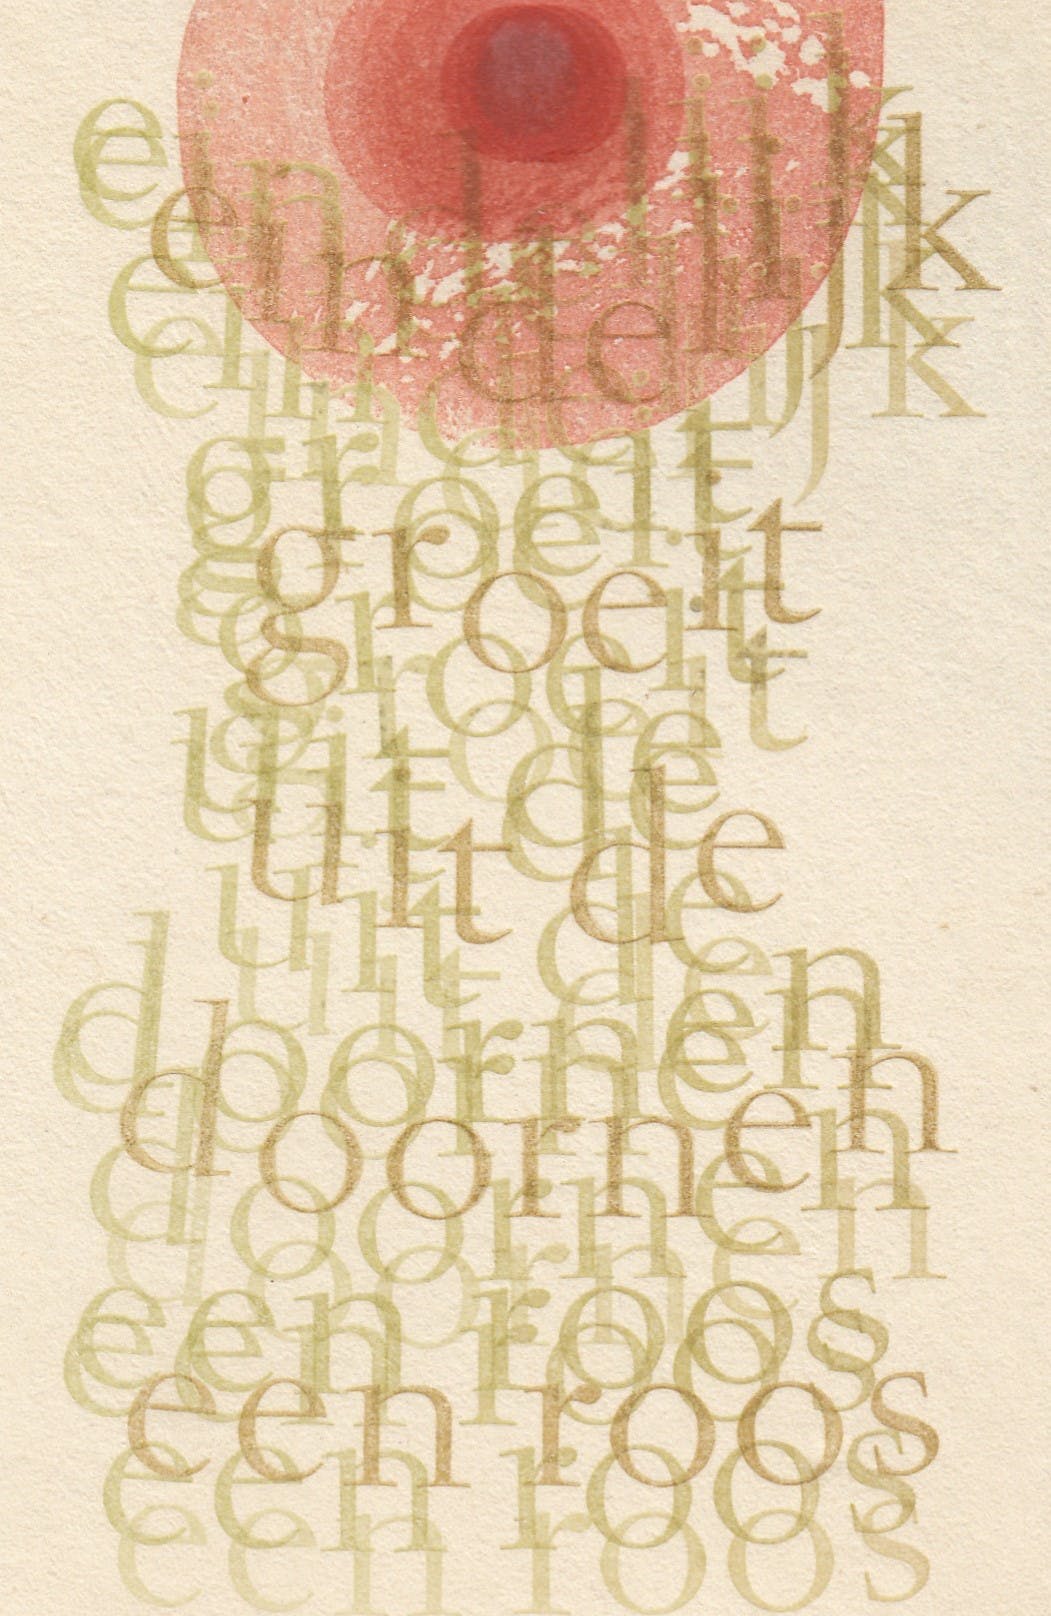 eindelijk
groeit
uit de
doornen
een roos